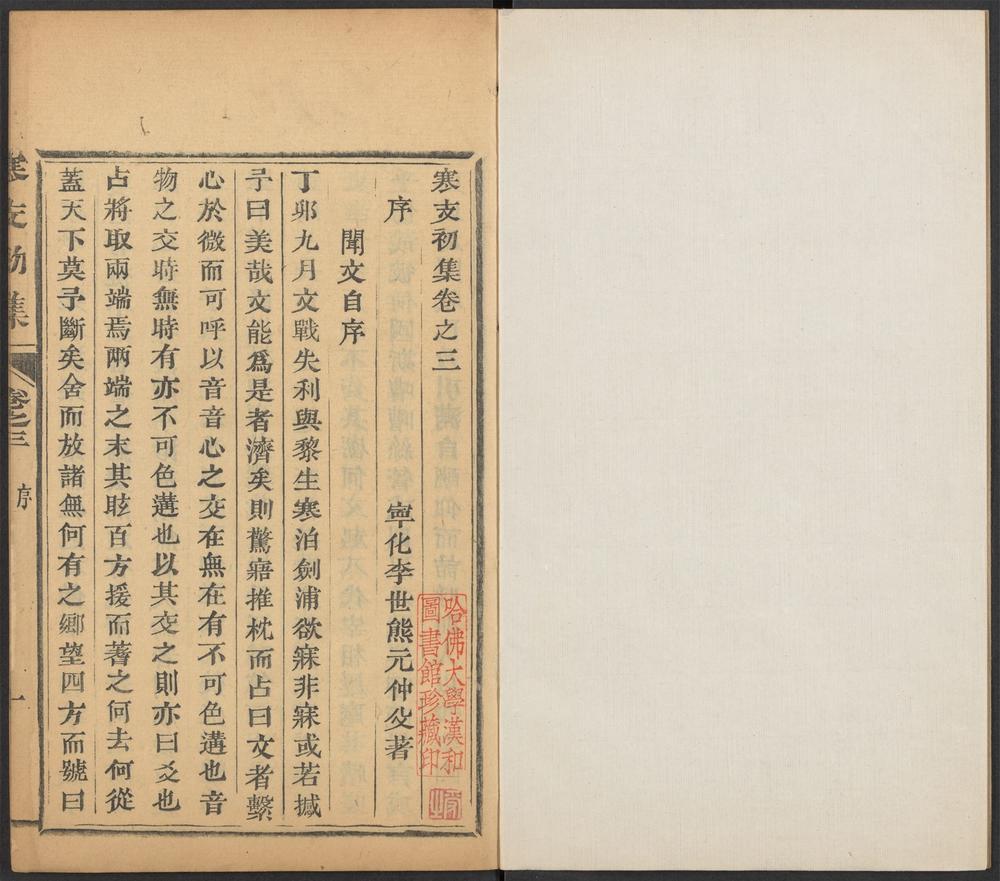 寒支初集卷之三
序
寧化李世熊元仲父著
聞文自序
丁卯九月文戰失利與黎生寒泊劍浦欲寐非寐或若撼
予曰美哉文能爲是者濟矣則驚寤推枕而占曰文者繫
心於微而可呼以音音心之交在無在有不可色遘也音
物之交時無時有亦不可色遘也以其交之則亦曰爻也
占將取兩端焉兩端之末其眩百方援而蓍之何去何從
蓋天下莫予斷矣舍而放諸無何有之鄉望四方而號曰
寒支初集
卷之三
序
一
哈佛大學漢和
圖書館珍藏印